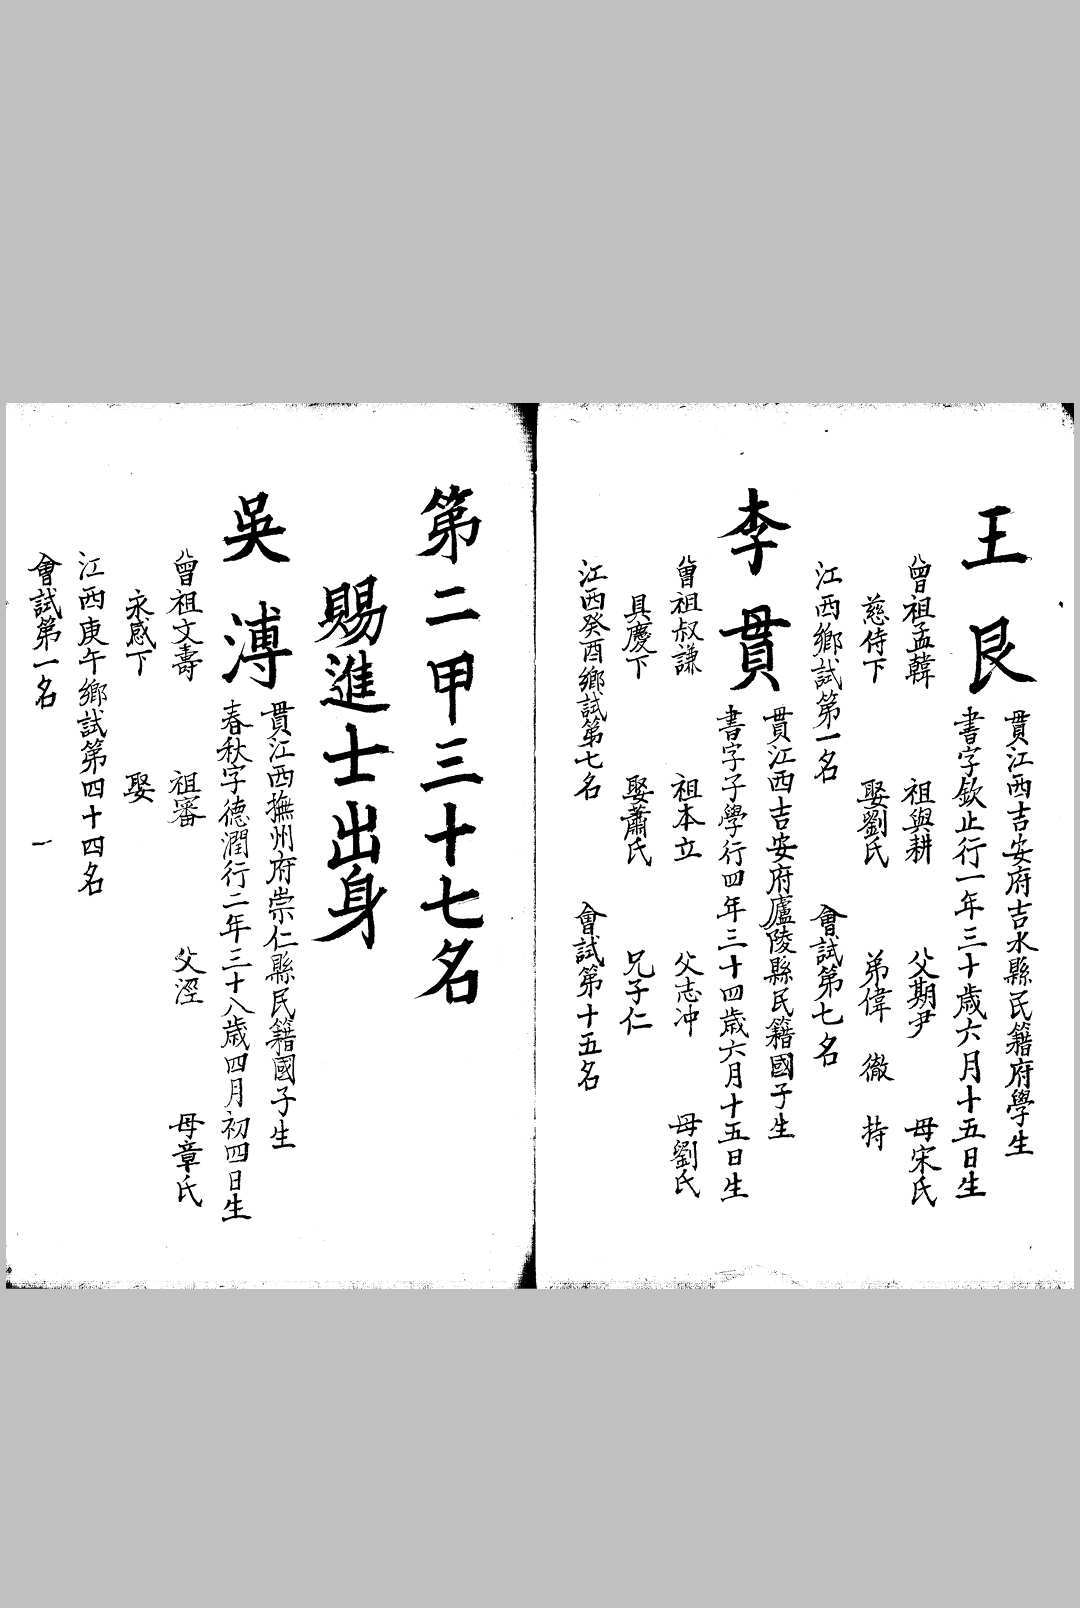 王艮
貫江西吉安府吉水縣民籍府學生
書字欽止行一年三十歲六月十五日生
曾祖孟韓 祖與耕 父期尹 母宋氏
慈侍下 娶劉氏 弟偉 徹 持
江西鄉試第一名 會試第七名
李貫
貫江西吉安府廬陵縣民籍國子生
書字子學行四年三十四歲六月十五日生
曾祖叔謙 祖本立 父志冲 母劉氏
具慶下 娶蕭氏 兄子仁
江西癸酉鄉試第七名 會試第十五名
第二甲三十七名
賜進士出身
吳溥
貫江西撫州府崇仁縣民籍國子生
春秋字德潤行二年三十八歲四月初四日生
曾祖文壽 祖審 父涇 母章氏
永感下 娶
江西庚午鄉試第四十四名
會試第一名 一